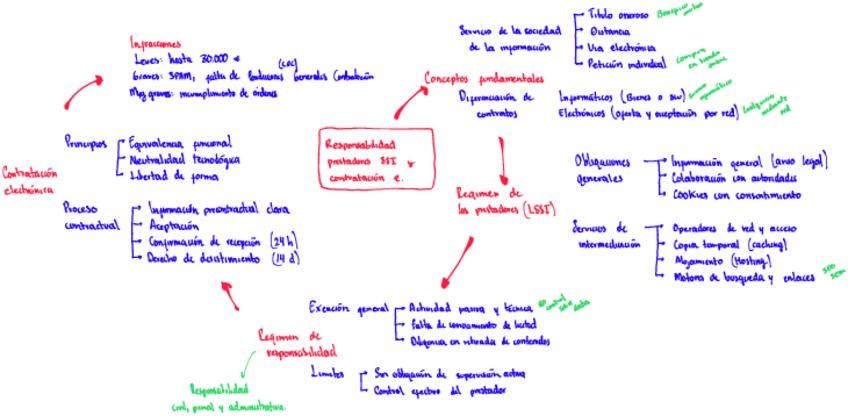 Responsabilidad
prestadores SSI y
contratación e.
Conceptos fundamentales
Servicio de la sociedad
de la información
Título oneroso
Distancia
Vía electrónica
Petición individual
Diferenciación de
contratos
Informáticos (Bienes o sw)
Electrónicos (oferta y aceptación por red)
Régimen de
los prestadores (LSSI)
Obligaciones
generales
Información general (aviso legal)
Colaboración con autoridades
Cookies con consentimiento
Servicios de
intermediación
Operadores de red y acceso
Copia temporal (caching)
Alojamiento (Hosting)
Motores de búsqueda y enlaces
SEO
SEM
Régimen de
responsabilidad
Exención general
Actividad pasiva y técnica
no
control
sobre
datos
Falta de conocimiento de licitud
Diligencia en retirada de contenidos
Límites
Sin obligación de supervisión activa
Control efectivo del prestador
Responsabilidad
civil, penal y administrativa.
Contratación
electrónica
Principios
Equivalencia funcional
Neutralidad tecnológica
Libertad de forma
Proceso
contractual
Información precontractual clara
Aceptación
Confirmación de recepción (24h)
Derecho de desistimiento (14 d)
Infracciones
Leves: hasta 30.000 €
Graves: SPAM, falta de Condiciones Generales Contratación
(CGC)
Muy graves: incumplimiento de órdenes